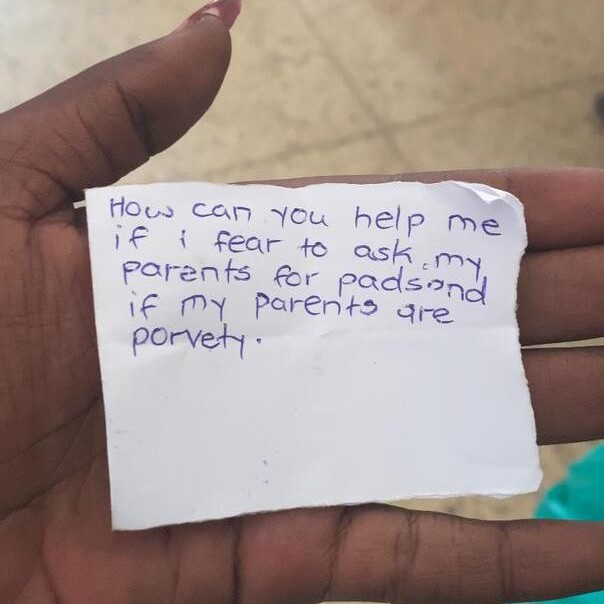 How can you help me
if i fear to ask my
parents for pads and
if my parents are
porvety.